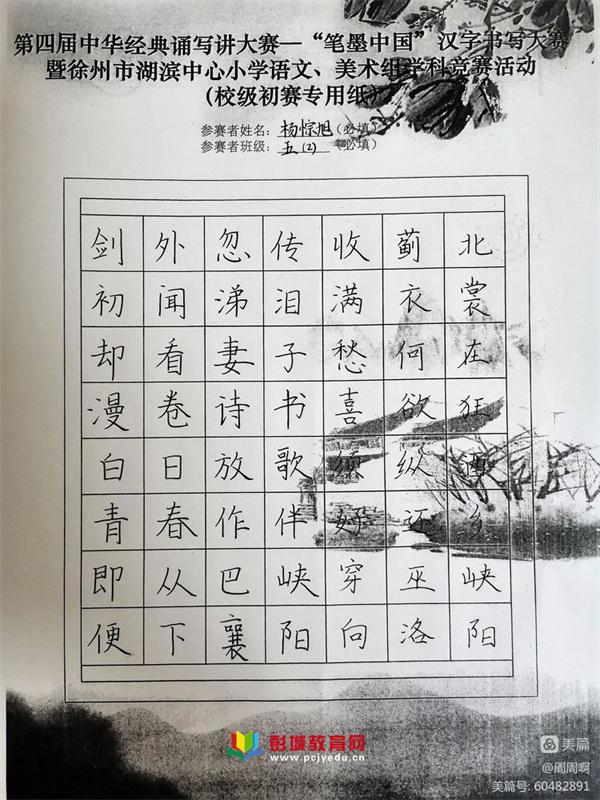 第四届中华经典诵写讲大赛—“笔墨中国”汉字书写大赛
暨徐州市湖滨中心小学语文、美术组学科竞赛活动
(校级初赛专用纸)
参赛者姓名：杨惊旭(必填)
参赛者班级：五(2)(必填)
剑外忽传收蓟北
初闻涕泪满衣裳
却看妻子愁何在
漫卷诗书喜欲狂
白日放歌须纵酒
青春作伴好还乡
即从巴峡穿巫峡
便下襄阳向洛阳
彭城教育网
www.pcjyedu.cn
美篇
@周周啊
美篇号: 60482891